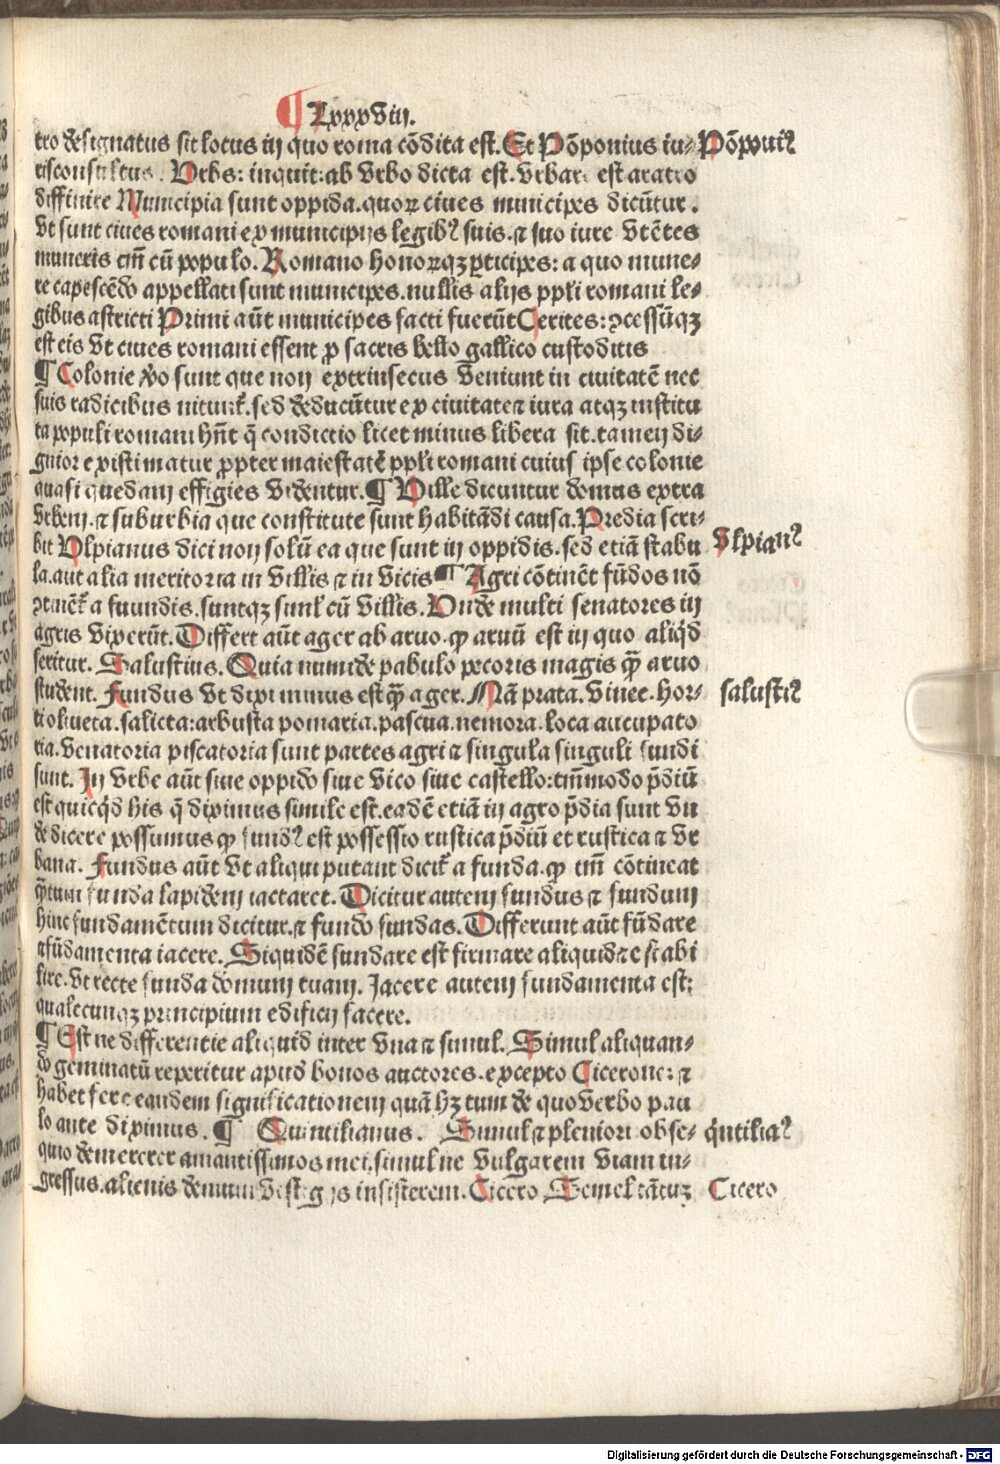 ¶ LxxxViij.
tro designatus sit locus in quo roma cōdita est. Et Pōponius iu- Pōponiꝰ
risconsultus. Vrbs: inquit: ab Vrbo dicta est. Vrbare est aratro
diffinire Municipia sunt oppida. quoꝝ ciues municipes dicūtur.
Vt sunt ciues romani ex municipijs legibꝰ suis. ⁊ suo iure Vtētes
muneris cm̄ cū populo. Romano honoꝝqꝫ ꝑticipes: a quo mune-
re capescēdo appellati sunt municipes. nullis alijs ppl̄i romani le-
gibus astricti Primi aūt municipes facti fuerūt Cerites: ꝯcessūqꝫ
est eis Vt ciues romani essent ꝓ sacris bello gallico custoditis
¶ Colonie ꝟo sunt que non extrinsecus Veniunt in ciuitatē nec
suis radicibus nitunt᷑. sed deducūtur ex ciuitate ⁊ iura atqꝫ institu
ta populi romani hn̄t q̄ condictio licet minus libera sit. tamen di-
gnior existimatur ꝓpter maiestatē ppl̄i romani cuius ipse colonie
quasi quedam effigies Videntur. ¶ Ville dicuntur domus extra
Vrbem. ⁊ suburbia que constitute sunt habitādi causa. Predia scri-
bit Vlpianus dici non solū ea que sunt in oppidis. sed etiā stabu Vlpianꝰ
la. aut alia meritoria in Villis ⁊ in Vicis ¶ Agri cōtinēt fūdos nō
ꝯtinēt᷑ a fuundis. suntqꝫ simĺ cū Villis. Vnde multi senatores in
agris Vixerūt. Differt aūt ager ab aruo. ꝙ aruū est in quo aliq̇d
seritur. Salustius. Quia numide pabulo pecoris magis q̄ꝫ aruo
student. Fundus Vt diximus est q̄ꝫ ager. Nā prata. Vinee. hor- salustiꝰ
ti oliueta. salicta: arbusta pomaria. pascua. nemora. loca aucupato
ria. Venatoria piscatoria sunt partes agri ⁊ singula singuli fundi
sunt. In Vrbe aūt siue oppido siue Vico siue castello: tm̄modo p̄diū
est quicq̇d his q̄ diximus simile est. eadē etiā in agro p̄dia sunt Vn
de dicere possumus ꝙ fundꝰ est possessio rustica p̄diū et rustica ⁊ Vr
bana. Fundus aūt Vt aliqui putant dicit᷑ a funda. ꝙ tm̄ cōtineat
q̄tum funda lapidem iactaret. Dicitur autem fundus ⁊ fundum
hinc fundamētum dicitur. ⁊ fundo fundas. Differunt aūt fūdare
⁊ fūdamenta iacere. Siquidē fundare est firmare aliquid ⁊ e stabi
lire. Vt recte funda domum tuam. Jacere autem fundamenta est:
qualecunqꝫ principium edificij facere.
¶ Est ne differentie aliquid inter Vna ⁊ simul. Simul aliquan-
do geminatū reperitur apud bonos auctores. excepto Cicerone: ⁊
habet fere eandem significationem quā hꝫ tum de quo Verbo pau
lo ante diximus. ¶ Quintilianus. Simul ⁊ pleniori obse- q̇ntiliaꝰ
quio demererer amantissimos mei. simul ne Vulgarem Viam in-
gressus. alienis demum Vestigijs insisterem. Cicero Semel tātuꝫ Cicero